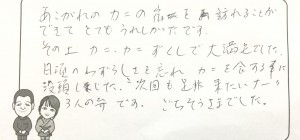 あこがれのカニの宿を訪れることが
できて とてもうれしかったです。
その上 カニ・カニ ずくしで 大満足でした。
日頃のわずらしさを忘れ カニを食する事に
没頭しました。次回も是非 来たいナー〜
3人の弁です。 ごちそうさまでした。